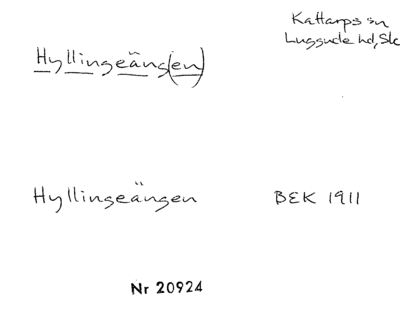 Kattarps sn
Luggude hd, Sk
Hyllingeäng(en)
Hyllingeängen BEK 1911
Nr 20924